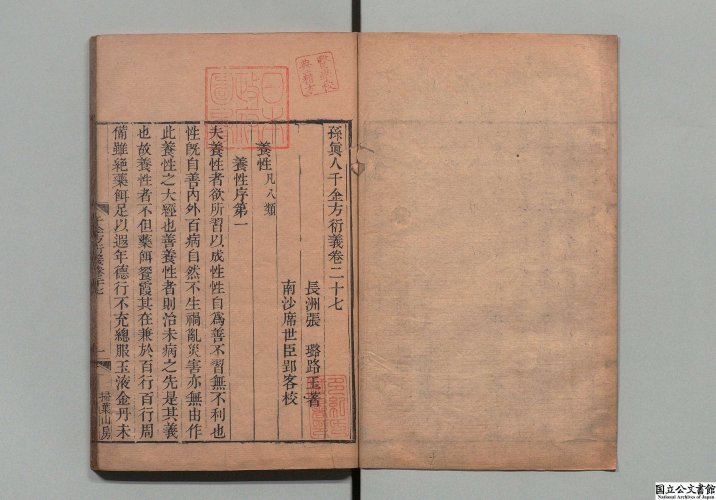 孫眞人千金方衍義卷二十七
長洲張　璐路玉著
南沙席世臣郢客校
養性凡八類
養性序第一
夫養性者欲所習以成性性自爲善不習無不利也
性旣自善內外百病自然不生禍亂災害亦無由作
此養性之大經也善養性者則治未病之先是其義
也故養性者不但藥餌餐霞其在兼於百行百行周
備雖絕藥餌足以遐年德行不充總服玉液金丹未
千金方衍義卷二十七
一
掃葉山房
醫學館
日本
政府
圖書
国立公文書館
National Archives of Japan